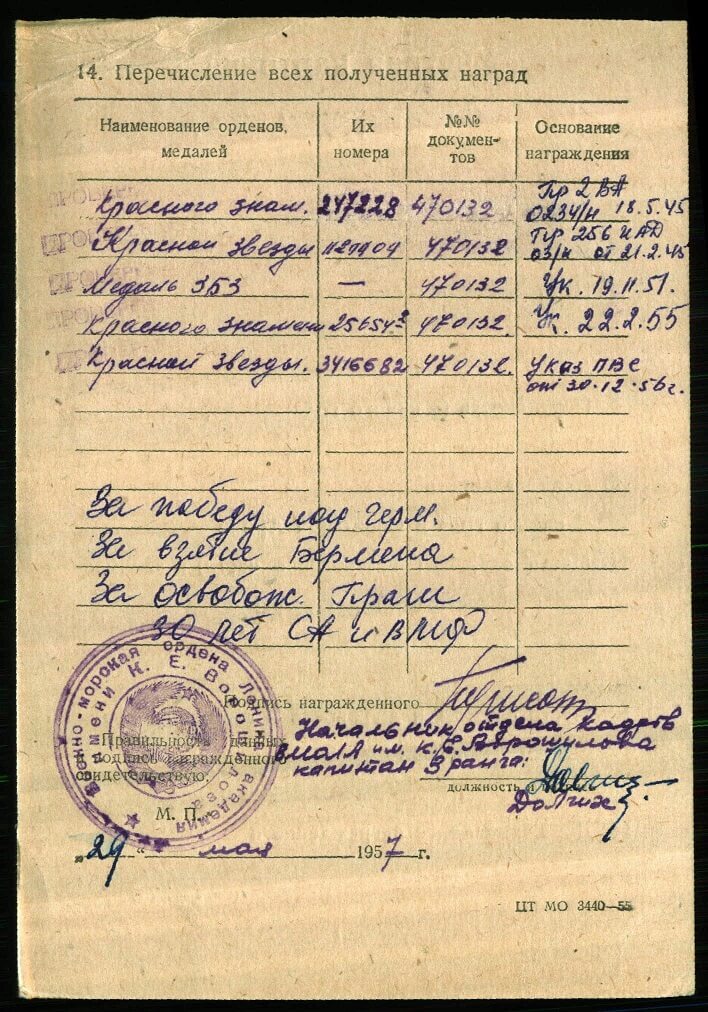 14. Перечисление всех полученных наград
Наименование орденов, медалей
Их номера
№№ документов
Основание награждения
Красного знам. 247228 470132 Пр 2 ВА 0234/н 18.5.45
Красной звезды 470132 Пр 256 ИАД 03/н от 21.2.45
Медаль ЗБЗ — 470132 Ук. 19.11.51.
Красного знамени 470132 Ук. 22.2.55
Красной звезды. 3416682 470132. Указ ПВС от 30.12.56г.
За победу над герм.
За взятие Берлина
За освобож. Праги
30 лет СА и ВМФ
Подпись награжденного
Начальник отдела кадров
ВМОЛА им. К.Е. Ворошилова
капитан 3 ранга:
Правильность данных
и подпись награжденного
свидетельствую:
должность и
Долгих
М. П.
Военно-морская ордена Ленина академия
имени К. Е. Ворошилова
„29“ мая 1957 г.
ЦТ МО 3440—55